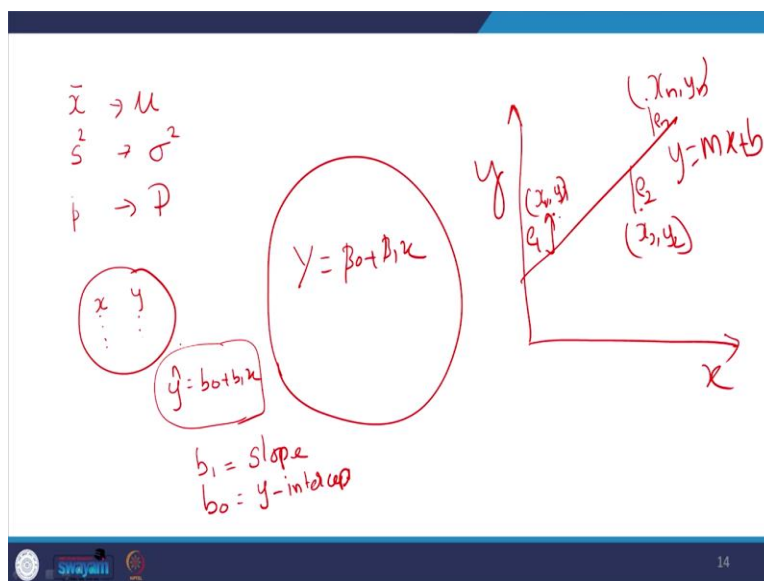 x̄ → μ
s² → σ²
p → P
x y
ŷ = b₀+b₁x
b₁ = slope
b₀ = y-intercep
Y = β₀+β₁x
y
(x₁, y₁)
e₁
(xₙ, yₙ)
y=mx+b
e₂
(x₂, y₂)
x
swayam
14